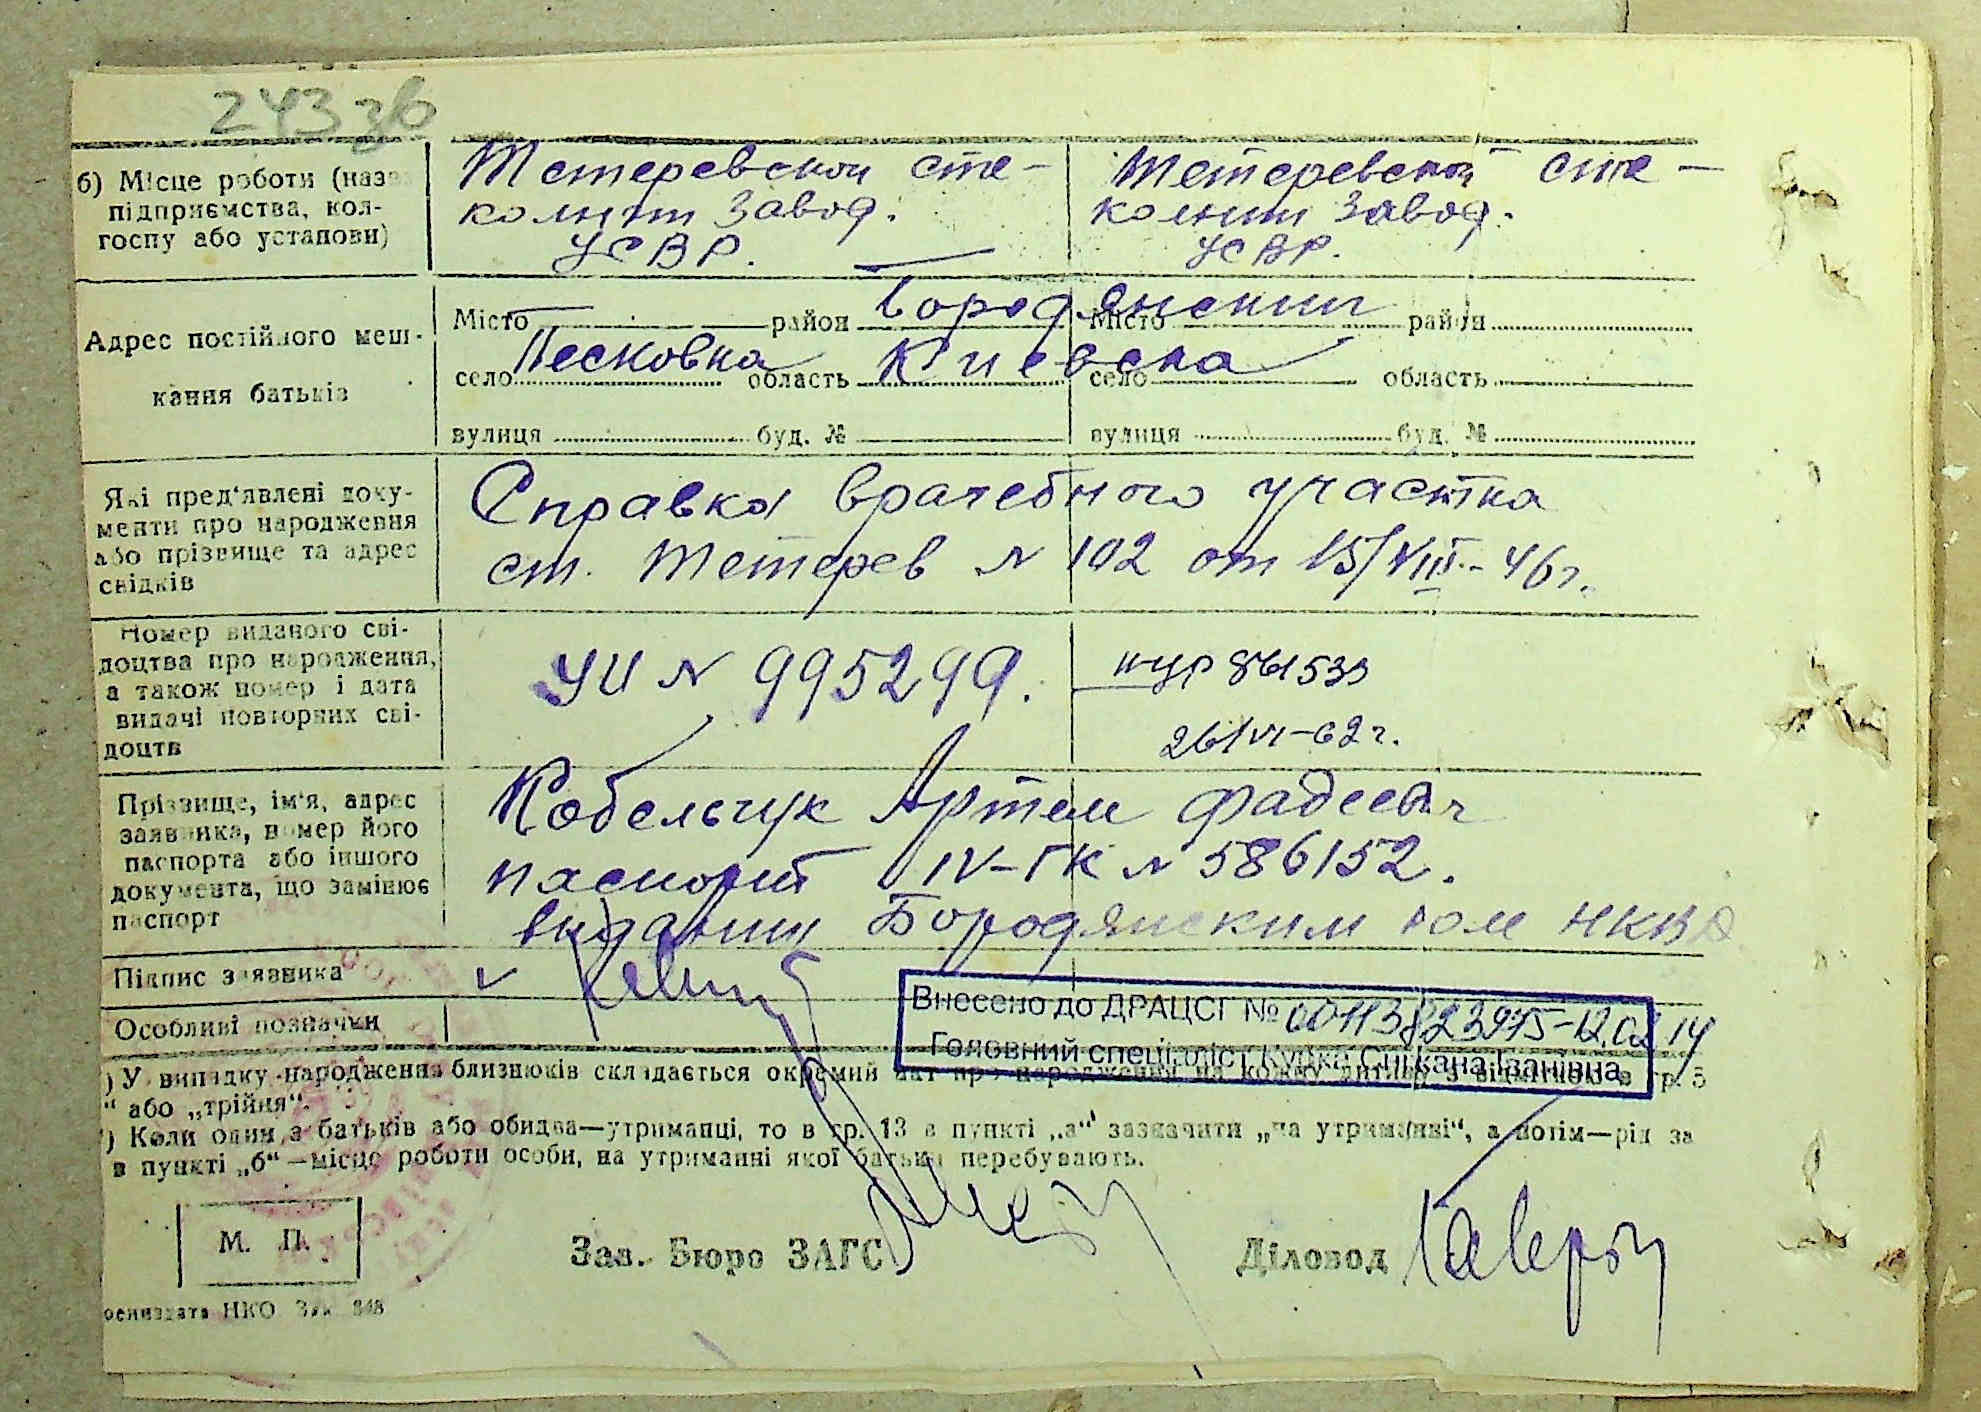 243 зв
б) Місце роботи (назва
підприємства, кол-
госпу або установи)
Тетеревской сте-
колит завод.
УСВР.
Тетеревской сте-
колит завод.
УСВР.
Адрес постійного меш-
кання батьків
Місто район Бородянский
село Песковка область Киевска
вулиця буд. №
Місто район
село область
вулиця буд. №
Які пред'явлені доку-
менти про народження
або прізвище та адрес
свідків
Справка врачебного участка
ст. Тетерев N 102 от 15/VIII-46г.
Номер виданого сві-
доцтва про народження,
а також номер і дата
видачі повторних сві-
доцтв
УИ N 995299.
861539
26/VI-62г.
Прізвище, ім'я, адрес
заявника, номер його
паспорта або іншого
документа, що замінює
паспорт
Кобельчук Артем Фадеевич
паспорт IV-ГК N 586152.
выданный Бородянским НКВД
Підпис заявника
Особливі позначки
Внесено до ДРАЦСГ № 00113823975-12.02.14
Головний спеціаліст Світлана Іванівна
) У випадку народження близнюків складається окремий акт про народження на кожну дитину з відміткою в гр. 5
“ або „трійня“.
) Коли один з батьків або обидва—утриманці, то в гр. 13 в пункті „а“ зазначити „на утриманні“, а потім—рід за
в пункті „б“—місце роботи особи, на утриманні якої батьки перебувають.
М. П.
Зав. Бюро ЗАГС
Діловод
НКО Зак. 348